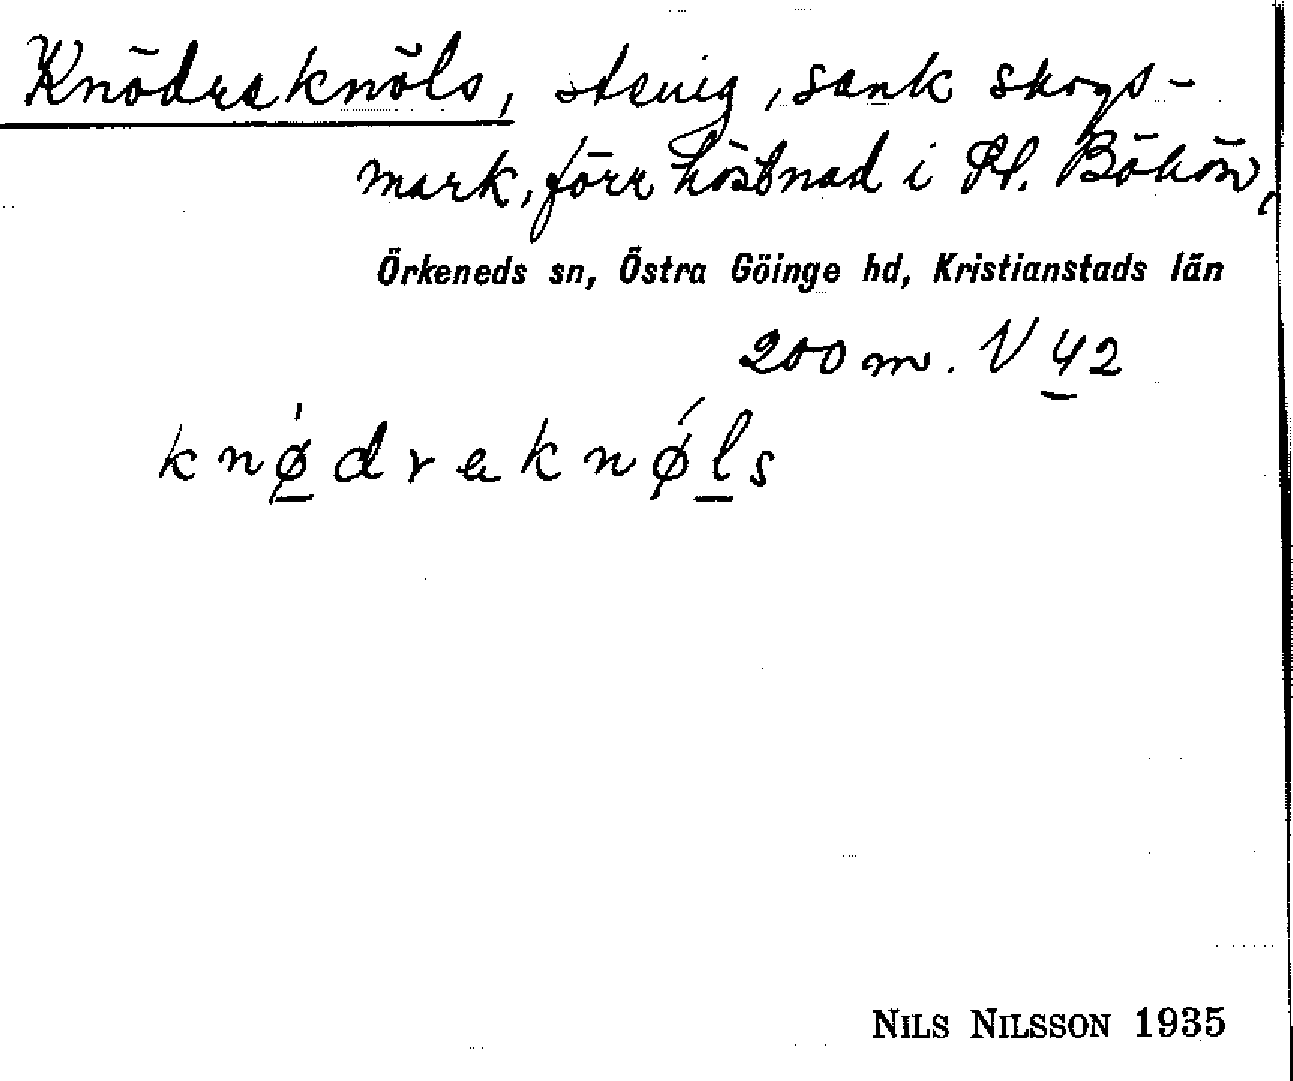 Knödraknöls, stenig, sank skogs-
mark, förr höstnad i St. Bökön,
Örkeneds sn, Östra Göinge hd, Kristianstads län
200 m. V 42
knødraknøls
NILS NILSSON 1935